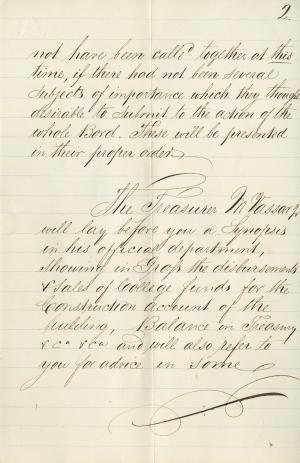 2.
not have been call'd together at this
time, if there had not been several
subjects of importance which they though
desirable to submit to the action of the
whole Bord. These will be presented
in their proper order
The Treasurer M Vassar Jr
will lay before you a Synopsis
in his official department,
showing in Gross the disbursements
& sales of College funds for the
Construction account of the
building, Balance in Treasury
&ca &ca and will also refer to
you for advice in some